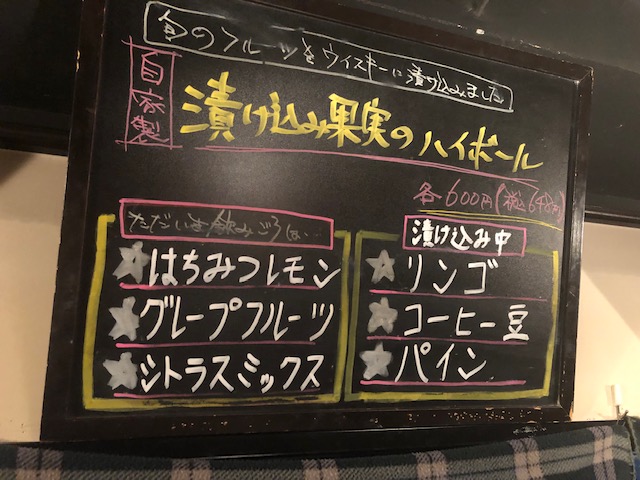 旬のフルーツをウイスキーに漬け込みました
自家製
漬け込み果実のハイボール
各600円(税込648円)
ただいま飲みごろは…
はちみつレモン
グレープフルーツ
シトラスミックス
漬け込み中
リンゴ
コーヒー豆
パイン